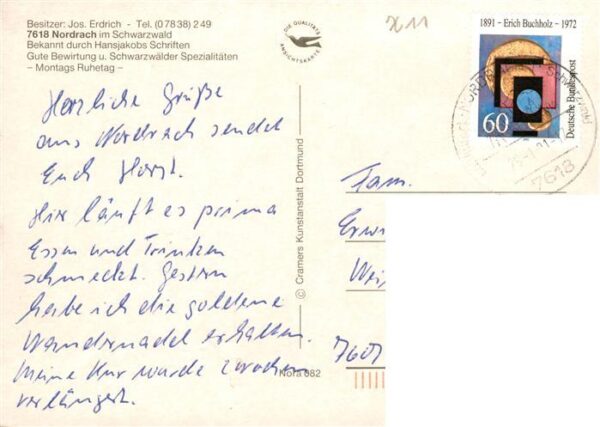 Besitzer: Jos. Erdrich - Tel. (0 78 38) 2 49
7618 Nordrach im Schwarzwald
Bekannt durch Hansjakobs Schriften
Gute Bewirtung u. Schwarzwälder Spezialitäten
– Montags Ruhetag –
DIE QUALITÄTS
ANSICHTSKARTE
X 11
1891 - Erich Buchholz - 1972
Deutsche Bundespost
60
7618
Herzliche Grüße
aus Nordrach sendet
Euch Horst.
Hir läuft es prima
Essen und Trinken
schmeckt. Gestern
habe ich die goldene
Wandernadel erhalten.
Meine Kur wurde 2 Wochen
verlängert.
© Cramers Kunstanstalt Dortmund
Nora 882
Fam.
Erwi
Wei
7607